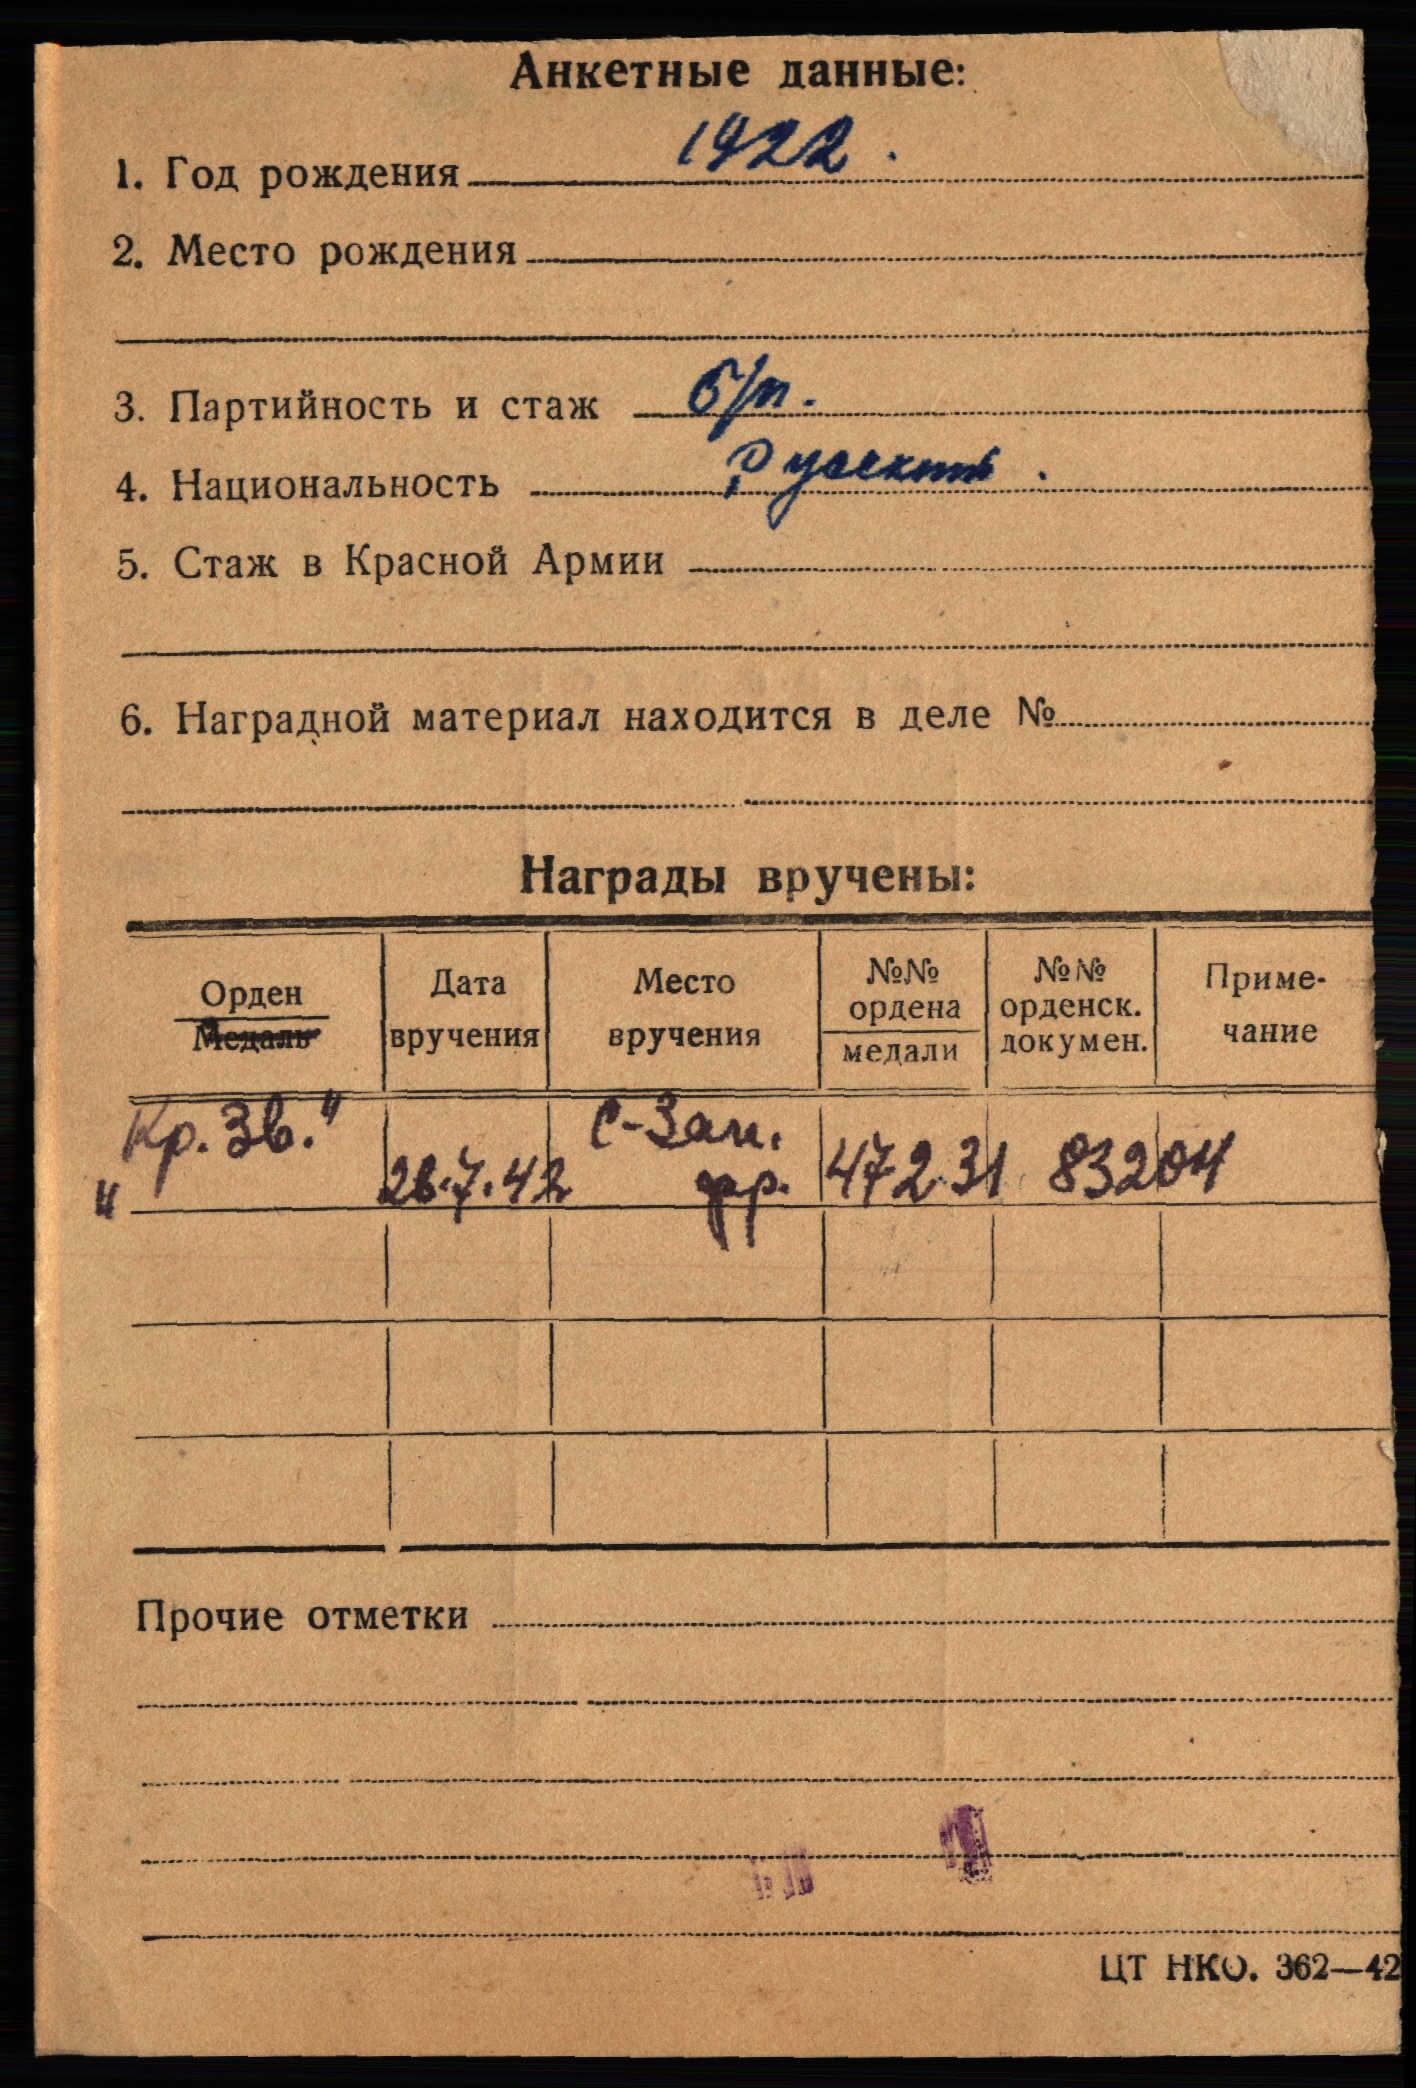 Анкетные данные:
1. Год рождения 1922.
2. Место рождения
3. Партийность и стаж б/п.
4. Национальность Русский.
5. Стаж в Красной Армии
6. Наградной материал находится в деле №
Награды вручены:
Орден
Медаль
Дата
вручения
Место
вручения
№№
ордена
медали
№№
орденск.
докумен.
Приме-
чание
„Кр. Зв."
26.7.42
С-Зап.
фр.
47231
83204
Прочие отметки
ЦТ НКО. 362—42